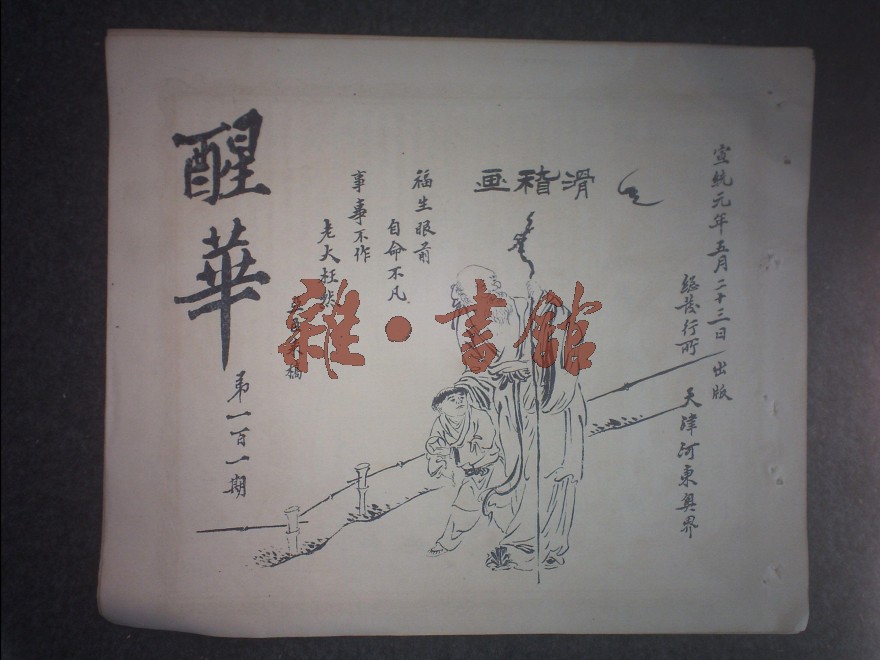 宣統元年五月二十三日出版
總發行所 天津河東奧界
滑稽画
福生眼前
自命不凡
事事不作
老大枉然
醒華
第一百一期
雜·書館